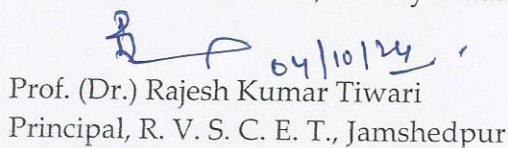 04/10/24
Prof. (Dr.) Rajesh Kumar Tiwari
Principal, R. V. S. C. E. T., Jamshedpur